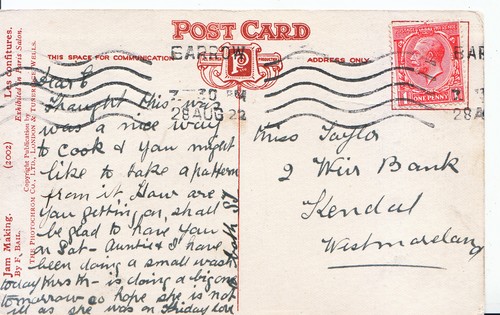 POST CARD
THIS SPACE FOR COMMUNICATION
ADDRESS ONLY.
BARROW
7 30 PM
28 AUG 22
BAR
28 A
ONE PENNY
Dear E
Thought this was
was a nice way
to cook & you might
like to take a pattern
from it. How are
you getting on, shall
be glad to have you
on Sat - Auntie & I have
been doing a small wash
today - is doing a big one
tomorrow so hope she is not
ill as she was on Friday Love
Miss Taylor
2 Weir Bank
Kendal
Westmoreland
Jam Making. (2002) Les confitures.
By F. Bail. Exhibited in Paris Salon.
Copyright Publication
THE PHOTOCHROM CO., LTD., LONDON & TUNBRIDGE WELLS.